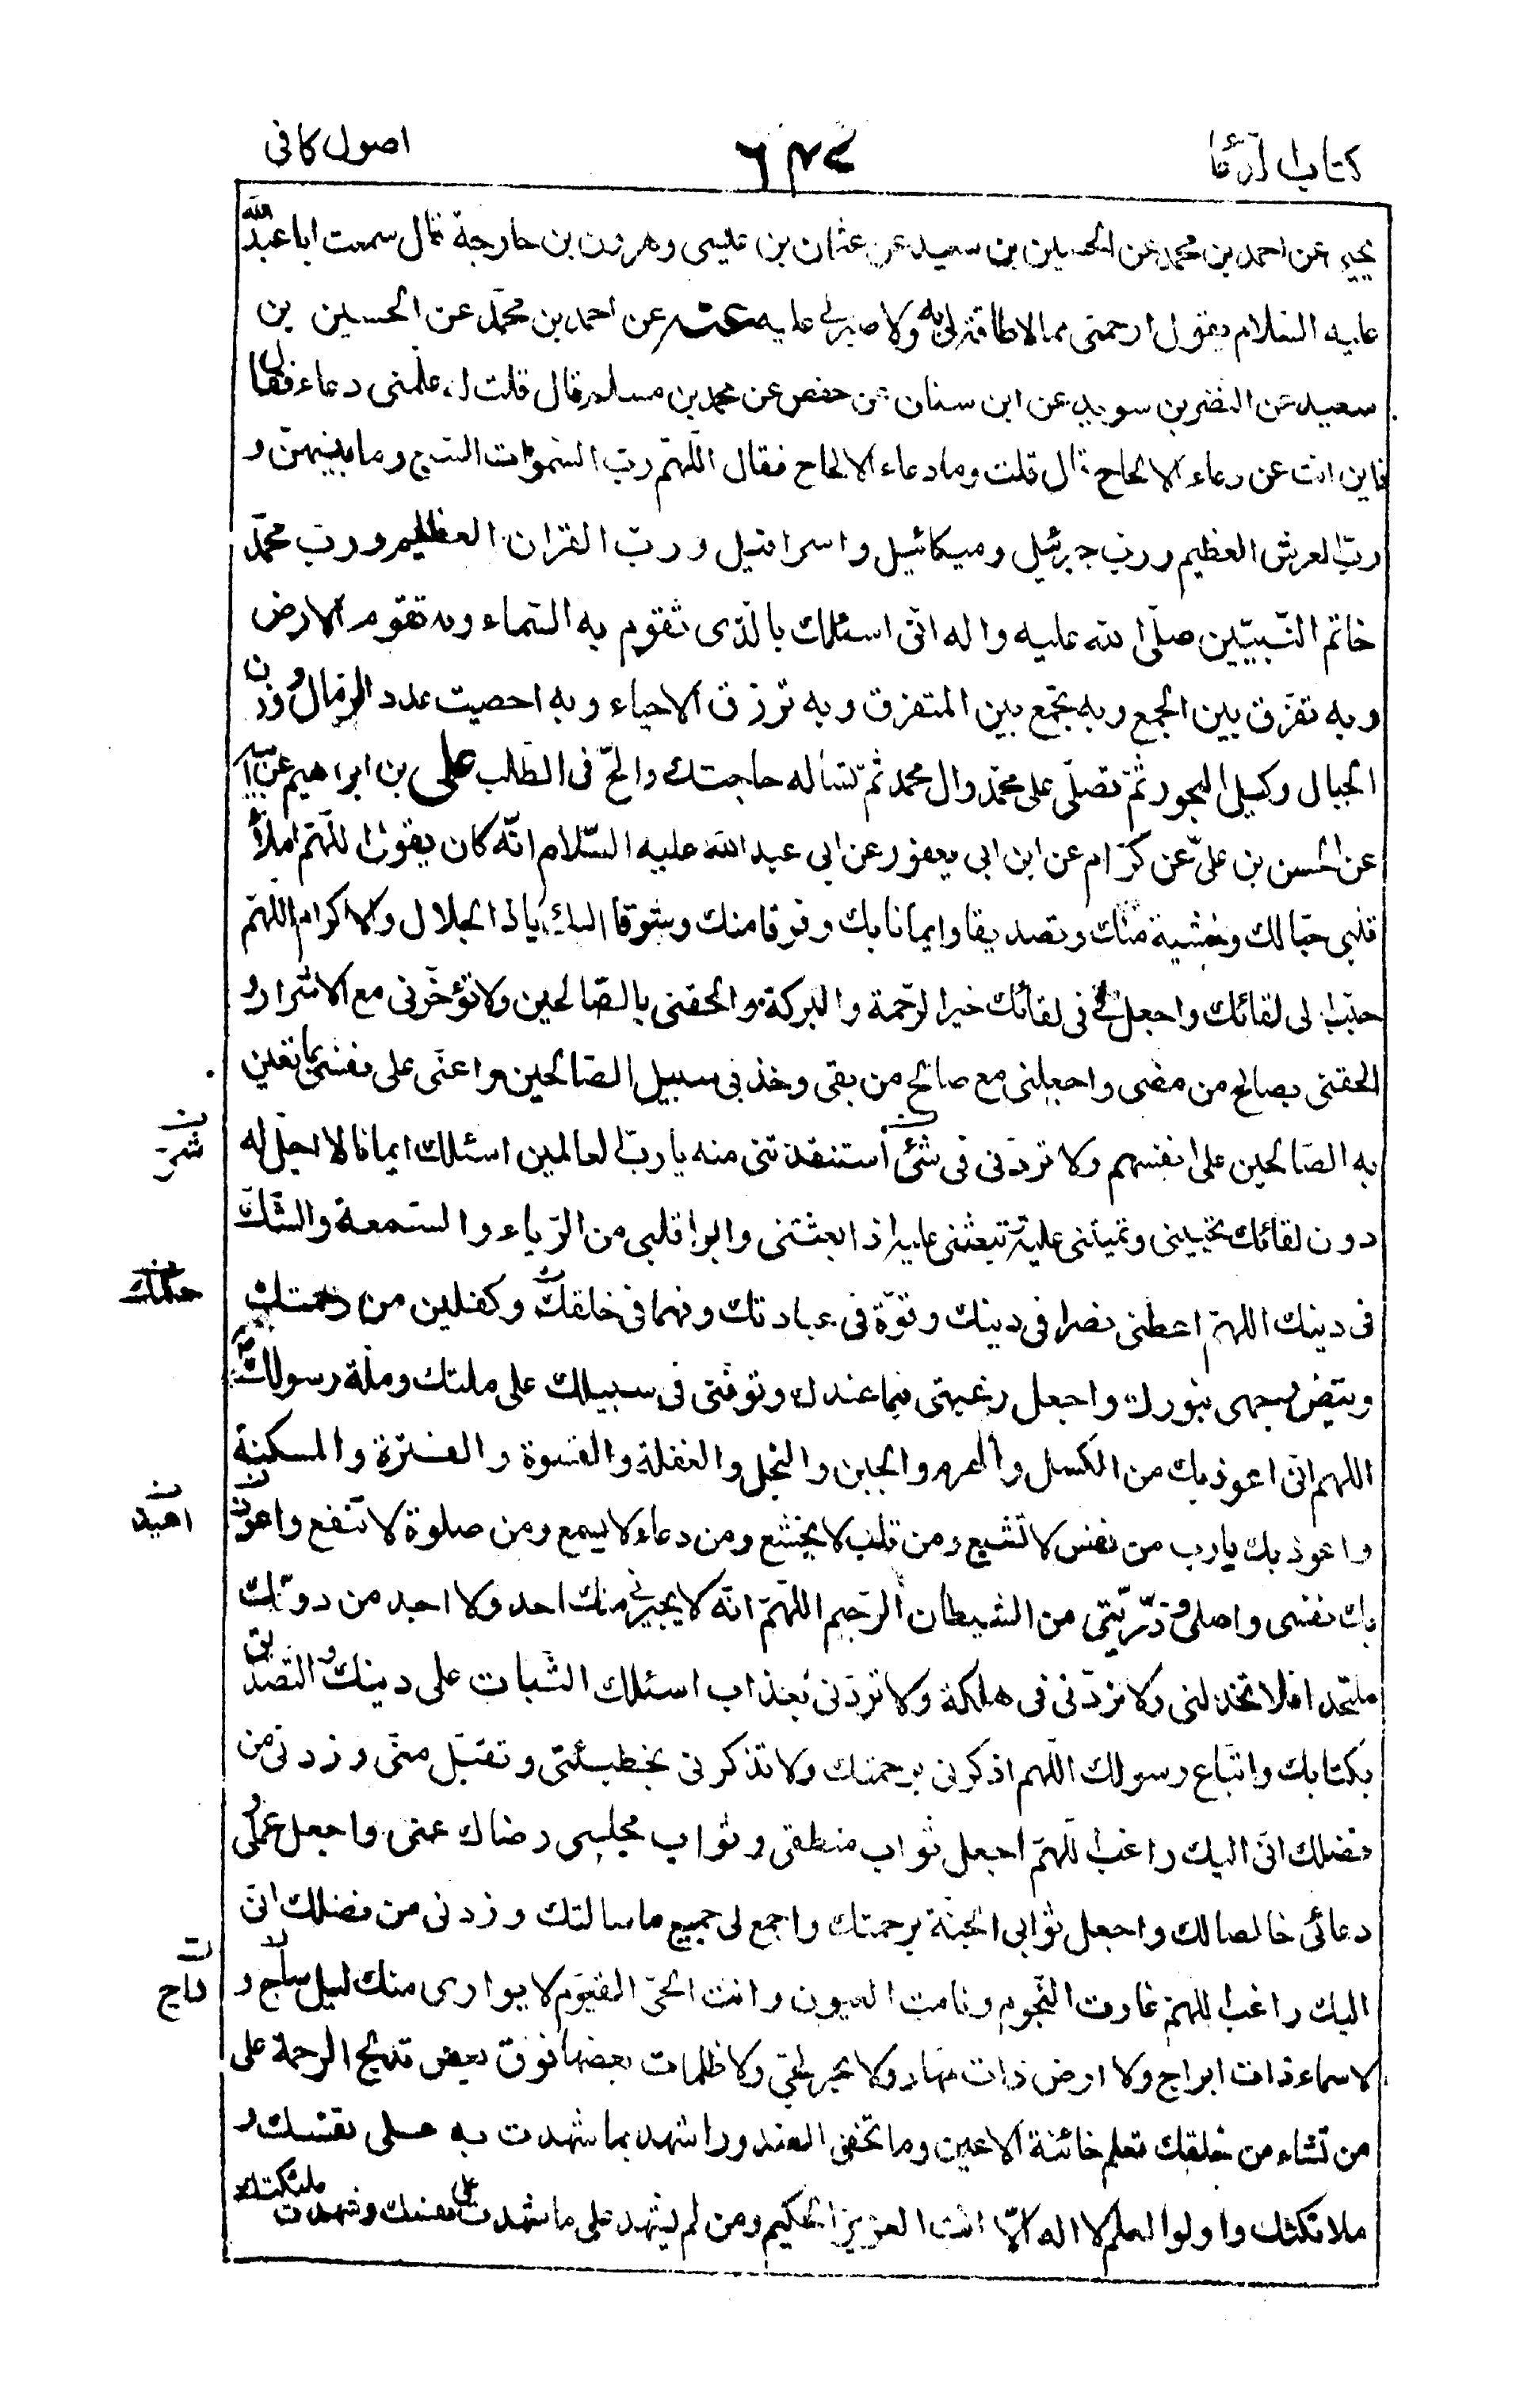 كتاب الدعا
٦٣٤
اصول كافى
يحيى عن احمد بن محمد عن الحسين بن سعيد عن عثمان بن عيسى وهرون بن خارجة قال سمعت ابا عبد الله
عليه السلام يقول ارحمنى مما لا طاقة لى به ولا صبر لى عليه عنه عن احمد بن محمد عن الحسين بن
سعيد عن النضر بن سويد عن ابن سنان عن حفص عن محمد بن مسلم قال قلت له علمنى دعاء فقال
فاين انت عن دعاء الالحاح قال قلت وما دعاء الالحاح فقال اللهم رب السموات السبع وما بينهن و
رب العرش العظيم ورب جبرئيل وميكائيل واسرافيل ورب القران العظيم ورب محمد
خاتم النبيين صلى الله عليه واله انى اسئلك بالذى تقوم به السماء وبه تقوم الارض
وبه تفرق بين الجمع وبه تجمع بين المتفرق وبه ترزق الاحياء وبه احصيت عدد الرمال ووزن
الجبال وكيل البحور ثم تصلى على محمد وال محمد ثم تسئاله حاجتك والح فى الطلب على بن ابراهيم عن ابيه
عن الحسن بن على عن كرام عن ابن ابى يعفور عن ابى عبد الله عليه السلام انه كان يقول اللهم املأ
قلبى حبا لك وخشية منك وتصديقا وايمانا بك وفرقا منك وشوقا اليك يا ذا الجلال والاكرام اللهم
حبب الى لقائك واجعل لى فى لقائك خير الرحمة والبركة والحقنى بالصالحين ولا تؤخرنى مع الاشرار و
الحقنى بصالح من مضى واجعلنى مع صالح من بقى وخذ بى سبيل الصالحين واعنى على نفسى بما تعين
به الصالحين على انفسهم ولا تردنى فى شئ استنقذتنى منه يا رب العالمين اسئلك ايمانا لا اجل له
شر
دون لقائك تحيينى وتميتنى عليه وتبعثنى عليه اذا بعثتنى وابرا قلبى من الرياء والسمعة والشك
فى دينك اللهم اعطنى نصرا فى دينك وقوة فى عبادتك وفهما فى خلقك وكفلين من رحمتك
حكمك
وبيض وجهى بنورك واجعل رغبتى فيما عندك وتوفنى فى سبيلك على ملتك وملة رسولك
اللهم انى اعوذ بك من الكسل والهرم والجبن والبخل والغفلة والقسوة والفترة والمسكنة
واعوذ بك يا رب من نفس لا تشبع ومن قلب لا يخشع ومن دعاء لا يسمع ومن صلوة لا تنفع واعوذ
اعيذ
بك نفسى واهلى وذريتى من الشيطان الرجيم اللهم انه لا يجيرنى منك احد ولا اجد من دونك
ملتحدا فلا تخذلنى ولا تردنى فى هلكة ولا تردنى بعذاب اسئلك الثبات على دينك والتصديق
بكتابك واتباع رسولك اللهم اذكرنى برحمتك ولا تذكرنى بخطيئتى وتقبل منى وزدنى من
فضلك انى اليك راغب اللهم اجعل ثواب منطقى وثواب مجلسى رضاك عنى واجعل عملى و
دعائى خالصا لك واجعل ثوابى الجنة برحمتك واجمع لى جميع ما سالتك وزدنى من فضلك انى
اليك راغب اللهم غارت النجوم ونامت العيون وانت الحى القيوم لا يوارى منك ليل ساج و
داج
لا سماء ذات ابراج ولا ارض ذات مهاد ولا بحر لجى ولا ظلمات بعضها فوق بعض تدلج الرحمة على
من تشاء من خلقك تعلم خائنة الاعين وما تخفى الصدور اشهد بما شهدت به على نفسك و
ملائكتك واولوا العلم لا اله الا انت العزيز الحكيم ومن لم يشهد على ما شهدت على نفسك وشهدت ملئكتك